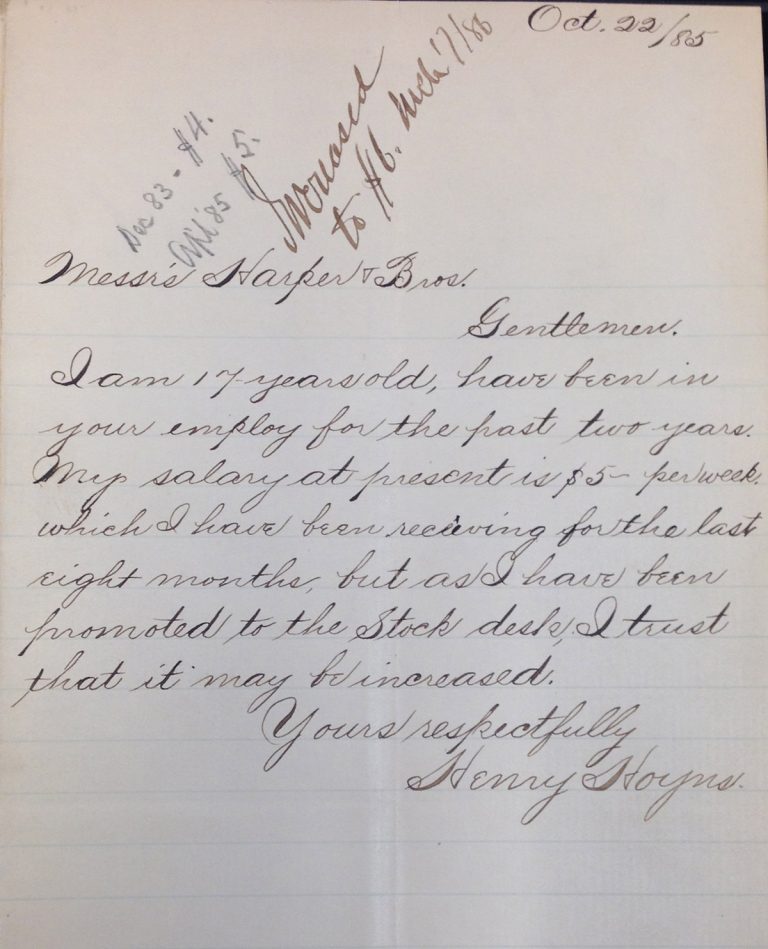 Oct. 22/85
Dec 83 - $4.
Apl '85 $5.
Increased
to $6. Mch 17/86
Messrs Harper & Bros.
Gentlemen.
I am 17 years old, have been in
your employ for the past two years.
My salary at present is $5- per week.
which I have been recieving for the last
eight months, but as I have been
promoted to the Stock desk, I trust
that it may be increased.
Yours respectfully
Henry Hoyns.